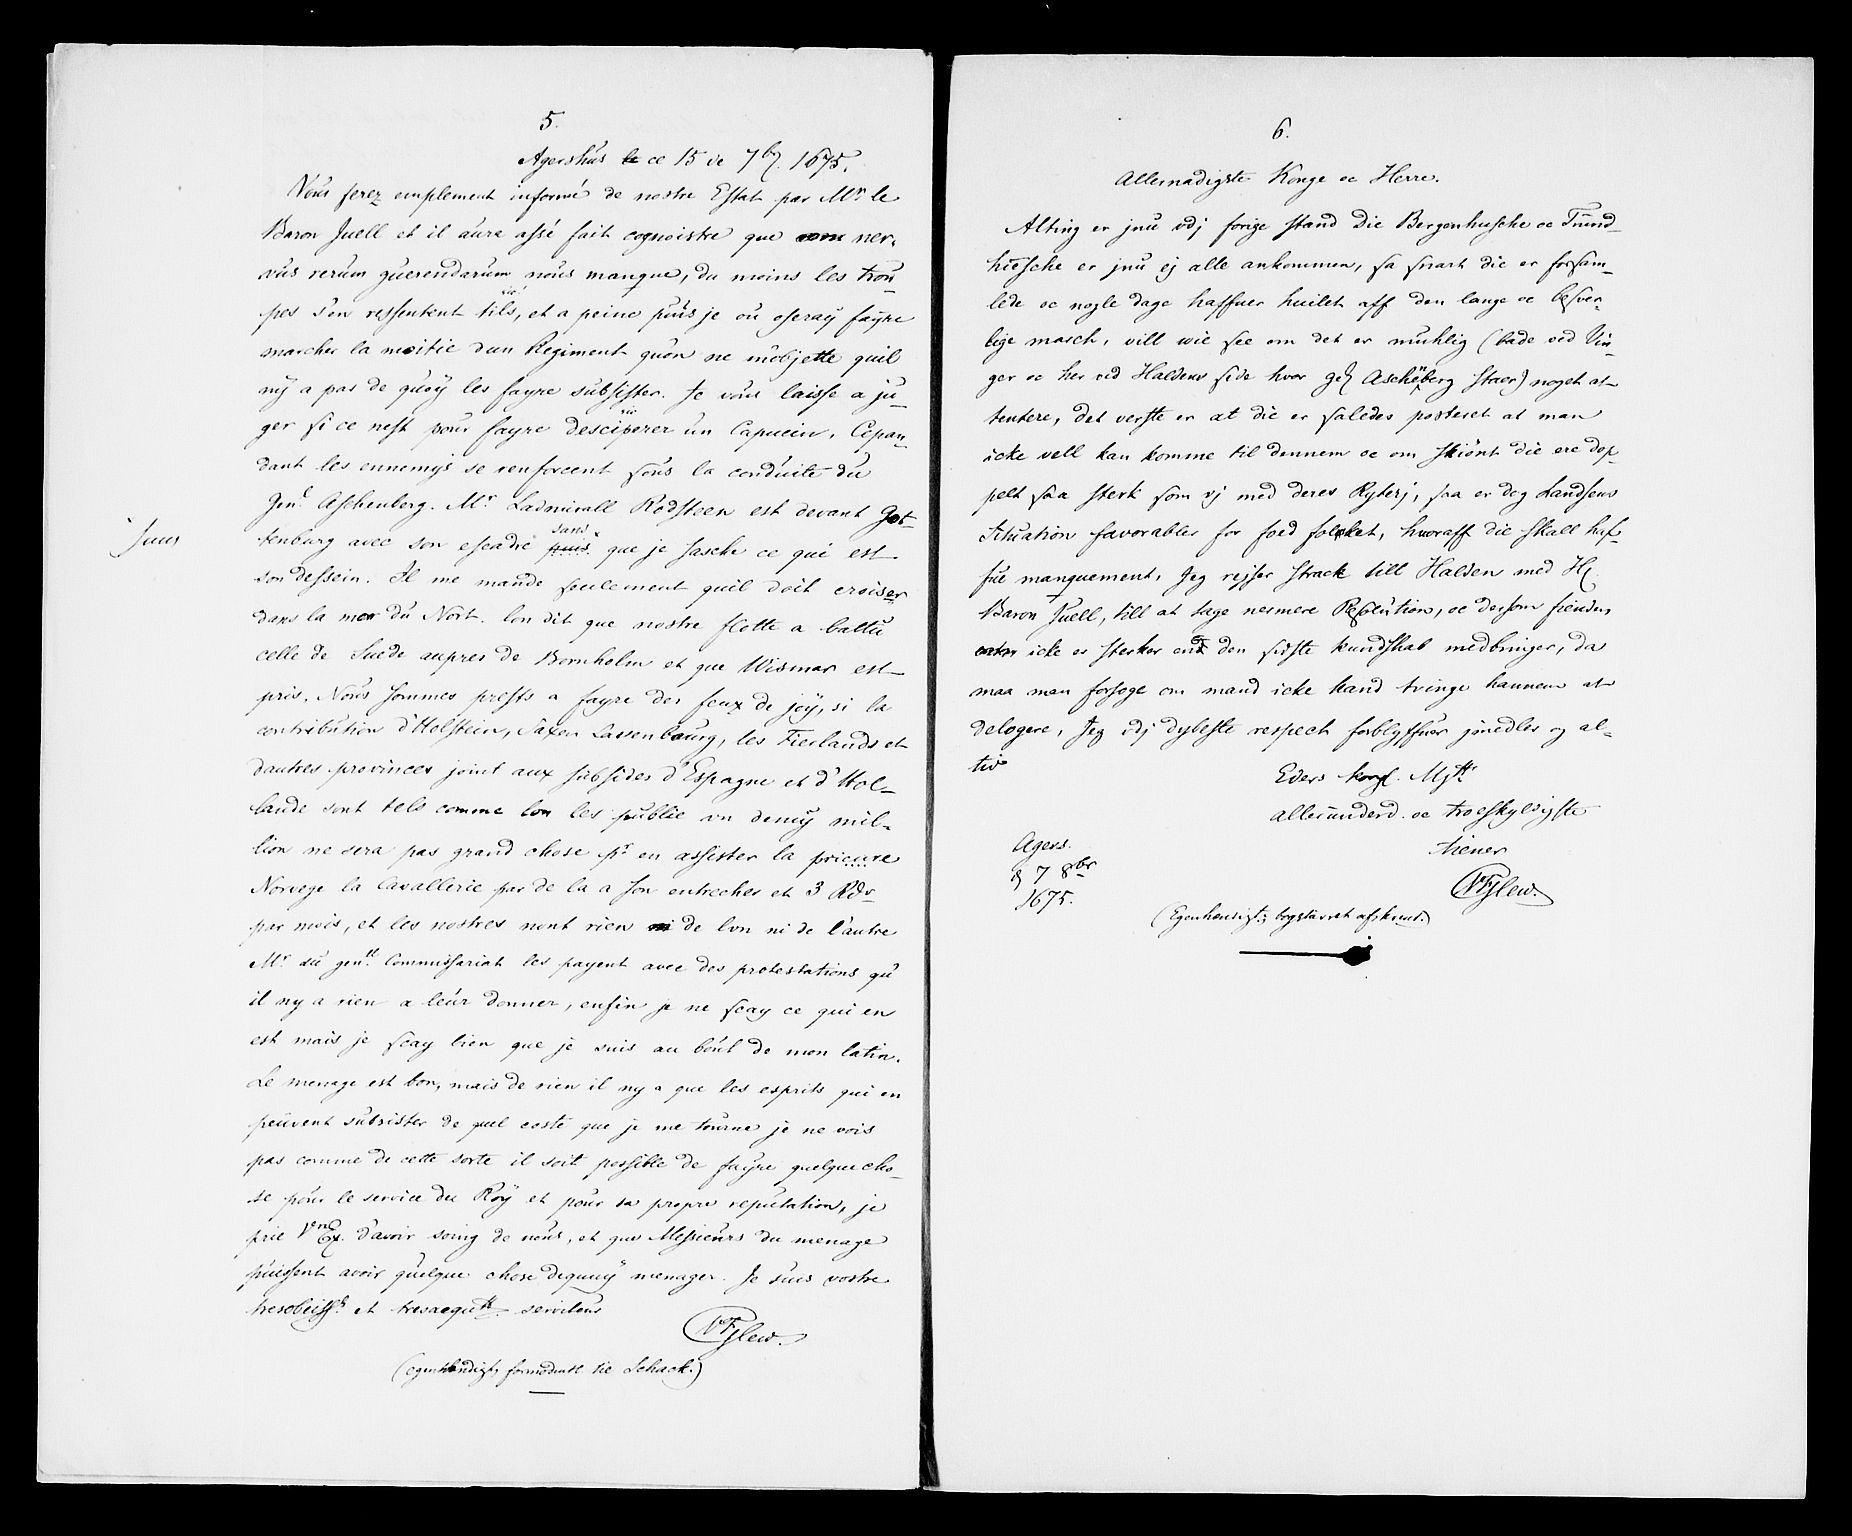 5.
Agershus ce 15 de 7b. 1675.
Vous serez emplement informé de nostre Estat par Mr le
Baron Juell et il aura assé fait cognoistre que ner-
vus rerum guerendarum nous manque, du moins les trou-
pes s'en ressentent tils, et a peine puis je ou oseray fayre
sic!
marcher la moitie dun Regiment quon ne m'objette quil
ny a pas de quoy les fayre subsister. Je vous laisse a ju-
ger si ce nest pour fayre desciperer un Capucin. Cepan-
sic
dant les ennemys se renforcent sous la conduite du
Genl Aschenberg. Mr Ladmirall Rodsteen est devant Got-
tenburg avec son escadre puis que je sasche ce qui est
sans
son dessein. Il me mande seulement quil doit croiser
dans la mer du Nort. lon dit que nostre flotte a battu
celle de Suede aupres de Bornholm et que Wismar est
pris. Nous sommes prests a fayre des feux de joÿ, si la
contribution d'Holstein, Saxen Lassenbourg, les Fierlands et
dautres provinces joint aux subsides d'Espagne et d'Hol-
lande sont tels comme lon les publie un demÿ mil-
lion ne sera pas grand chose pr en assister la prieure
Norvege la Cavallerie par de la a son entreches et 3 Rdr
par mois, et les nostres nont rien ni de lun ni de l'autre
Mr du genll Commissariat les payent avec des protestations qu
il ny a rien a leur donner, enfin je ne scay ce qui en
est mais je scay bien que je suis au bout de mon latin.
Le menage est bon, mais de rien il ny a que les esprits qui en
peuvent subsister de quel costé que je me tourne je ne vois
pas comme de cette sorte il soit possible de fayre quelque cho-
se pour le service du Roÿ et pour sa propre reputation, je
prie Vre Ex. d'avoir soing de nous, et que Messieurs du menage
puissent avoir quelque chose dequoÿ menager. Je suis vostre
tresobeisst et tresacqutt serviteur
VFglew.
(egenhændigt, formodentl til Schack.)
6.
Allernadigste Konge oc Herre.
Alting er jnu udj forige stand Die Bergenhusche oc Trund-
hiesche er jnu ej alle ankommen, sa snart die er forsam-
lede oc nogle dage haffuer huilet aff den lange oc besver-
lige masch, vill wie see om det er muhlig (bade ved Vin-
ger oc her ved Haldens side hvor gel Ascheberg staer) noget at
tentere, det verste er at die er saledes posteret at man
icke vell kan komme til dennem oc om skiönt die ere dop-
pelt saa sterk som vj med deres Ryterj, saa er dog Landsens
situation favorabler for foed folcket, huoraff die skall haf-
fue manquement, Jeg rejser strack till Halden med H.
Baron Juell, till at tage nermere Resolution, oc dersom fienden
icke er sterker end den sidste kundskab medbringer, da
maa man forsoge om mand icke kand tvinge hannem at
delogere, Jeg udj dybeste respect forblyffuer jmedler og al-
tid
Eders kongl. Mjtts
allerunderd. oc troeskyldigste
tiener
VFglew.
Agers.
d 7 8br
1675.
(Egenhendigt; bogstavret afskrevet.)